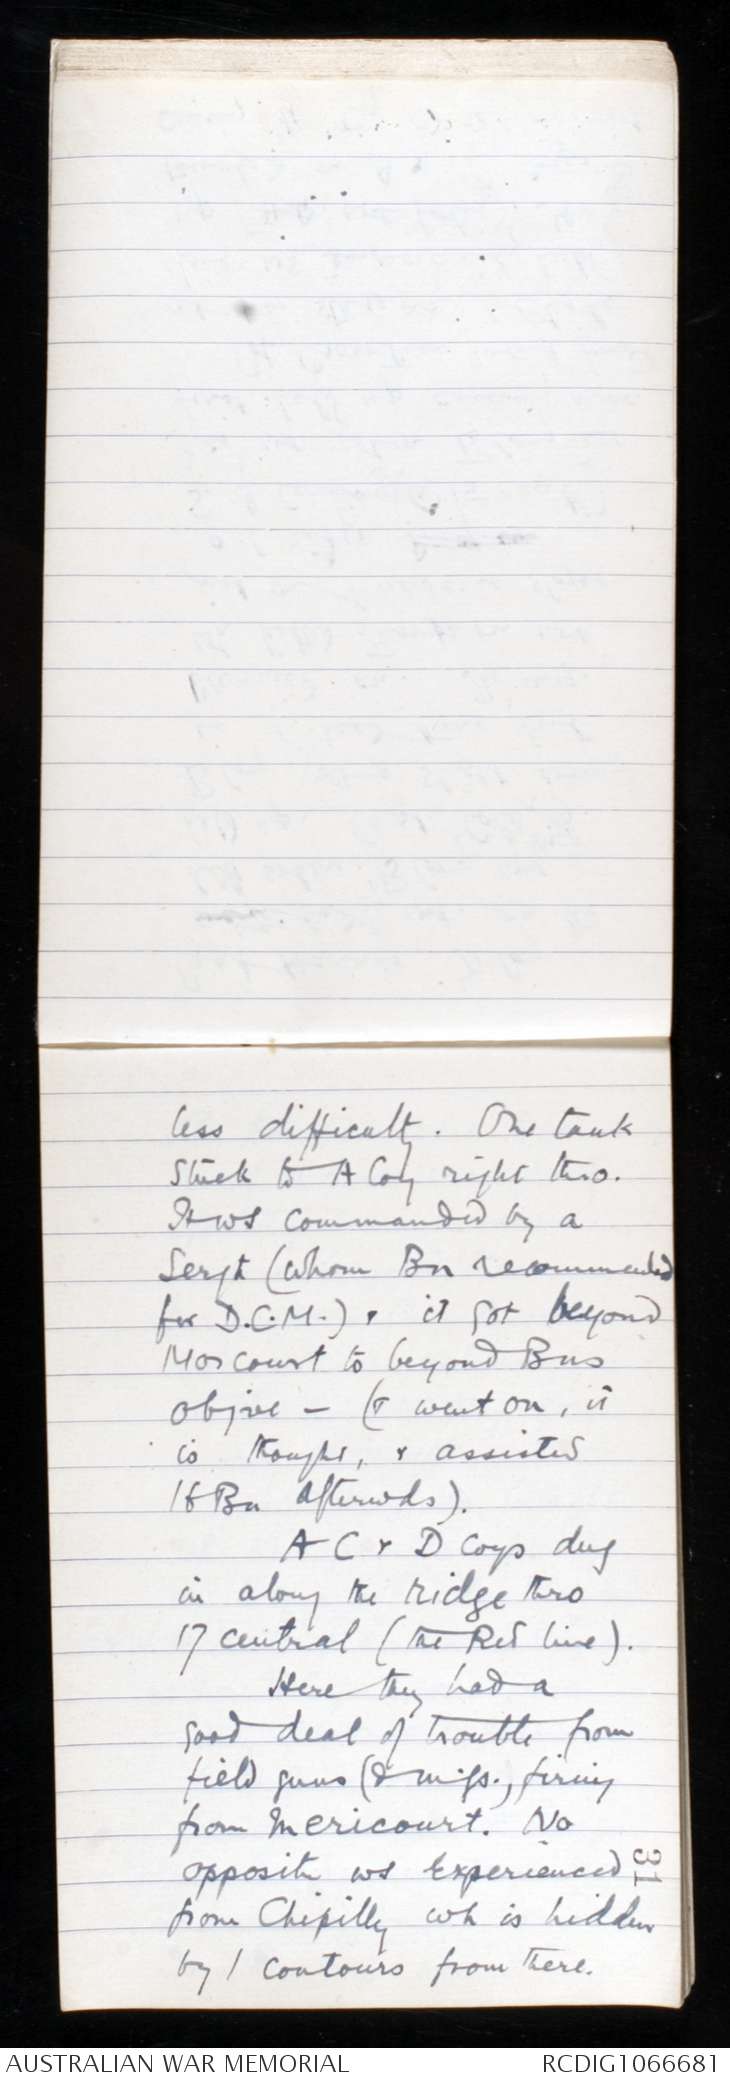 less difficulty. One tank
stuck to A Coy right thro.
It ws commanded by a
Sergt (whom Bn recommended
for D.C.M.) & it got beyond
Morcourt to beyond Bns
objive - (& went on, it
is thought, & assisted
16 Bn afterwds).
A C & D Coys dug
in along the ridge thro
17 central (the Red line).
Here they had a
good deal of trouble from
field guns (& m.gs.) firing
from Mericourt. No
oppositn ws experienced
from Chipilly wh is hidden
by / contours from there.
31
AUSTRALIAN WAR MEMORIAL
RCDIG1066681